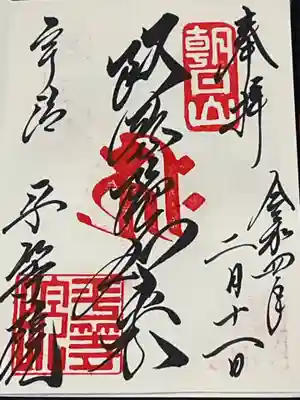 奉拝
令和四年
二月十一日
朝日山
阿弥陀如来
宇治
平等院